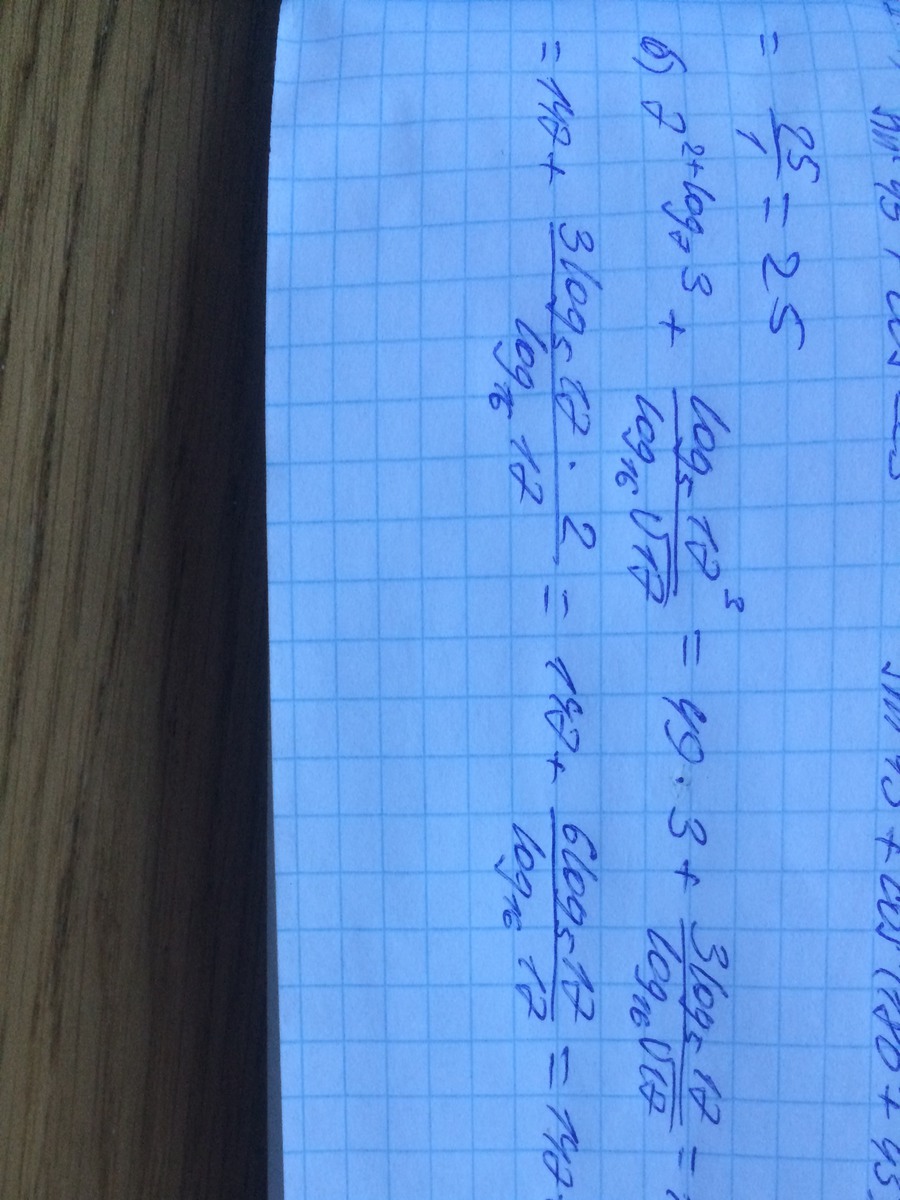 sin 45 + cos (180 + 45
= 25/1 = 25
б) 7^(2+log_7 3) + (log_5 17^3)/(log_16 √17) = 49 · 3 + (3log_5 17)/(log_16 √17) =
= 147 + (3log_5 17 · 2)/(log_16 17) = 147 + (6log_5 17)/(log_16 17) = 147